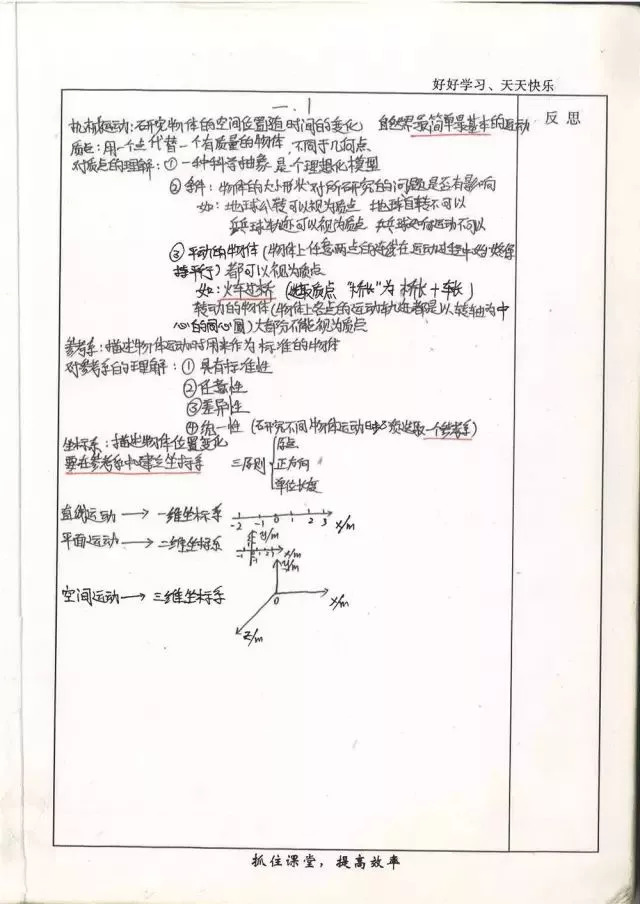 好好学习、天天快乐
一.1
反思
机械运动:研究物体的空间位置随时间的变化 自然界最简单最基本的运动
质点:用一个点代替一个有质量的物体,不同于几何点
对质点的理解:①一种科学抽象 是个理想化模型
②条件:物体的大小形状对所研究的问题是否有影响
如:地球公转可以视为质点 地球自转不可以
乒乓球轨迹可以视为质点 乒乓球 运动不可以
③平动的物体(物体上任意两点的连线在运动过程中 始终保
持平行)都可以视为质点
如:火车过桥 ( 质点 "桥长"为桥长+车长)
转动的物体(物体上各点的运动轨迹都是以转轴为中
心的同心圆)大部分不能视为质点
参考系:描述物体运动时用来作为标准的物体
对参考系的理解:①具有标准性
②任意性
③差异性
④统一性 (研究不同物体运动时必须选取一个参考系)
坐标系:描述物体位置变化
要在参考系中建立坐标系
三原则
原点
正方向
单位长度
直线运动→一维坐标系
-2 -1 0 1 2 3 x/m
平面运动→二维坐标系
y/m
x/m
空间运动→三维坐标系
y/m
0
x/m
z/m
抓住课堂,提高效率